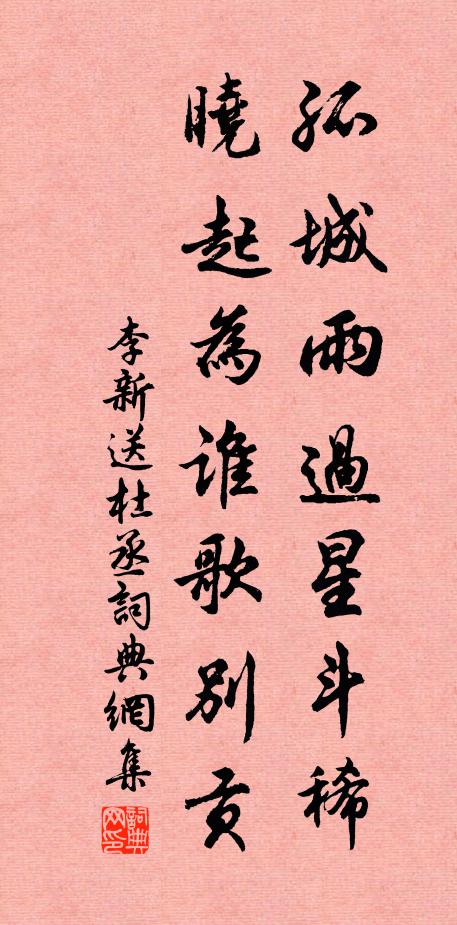 孤城雨過星斗稀
曉起為誰歌別貢
李新送杜丞詞典網集
詞典网印